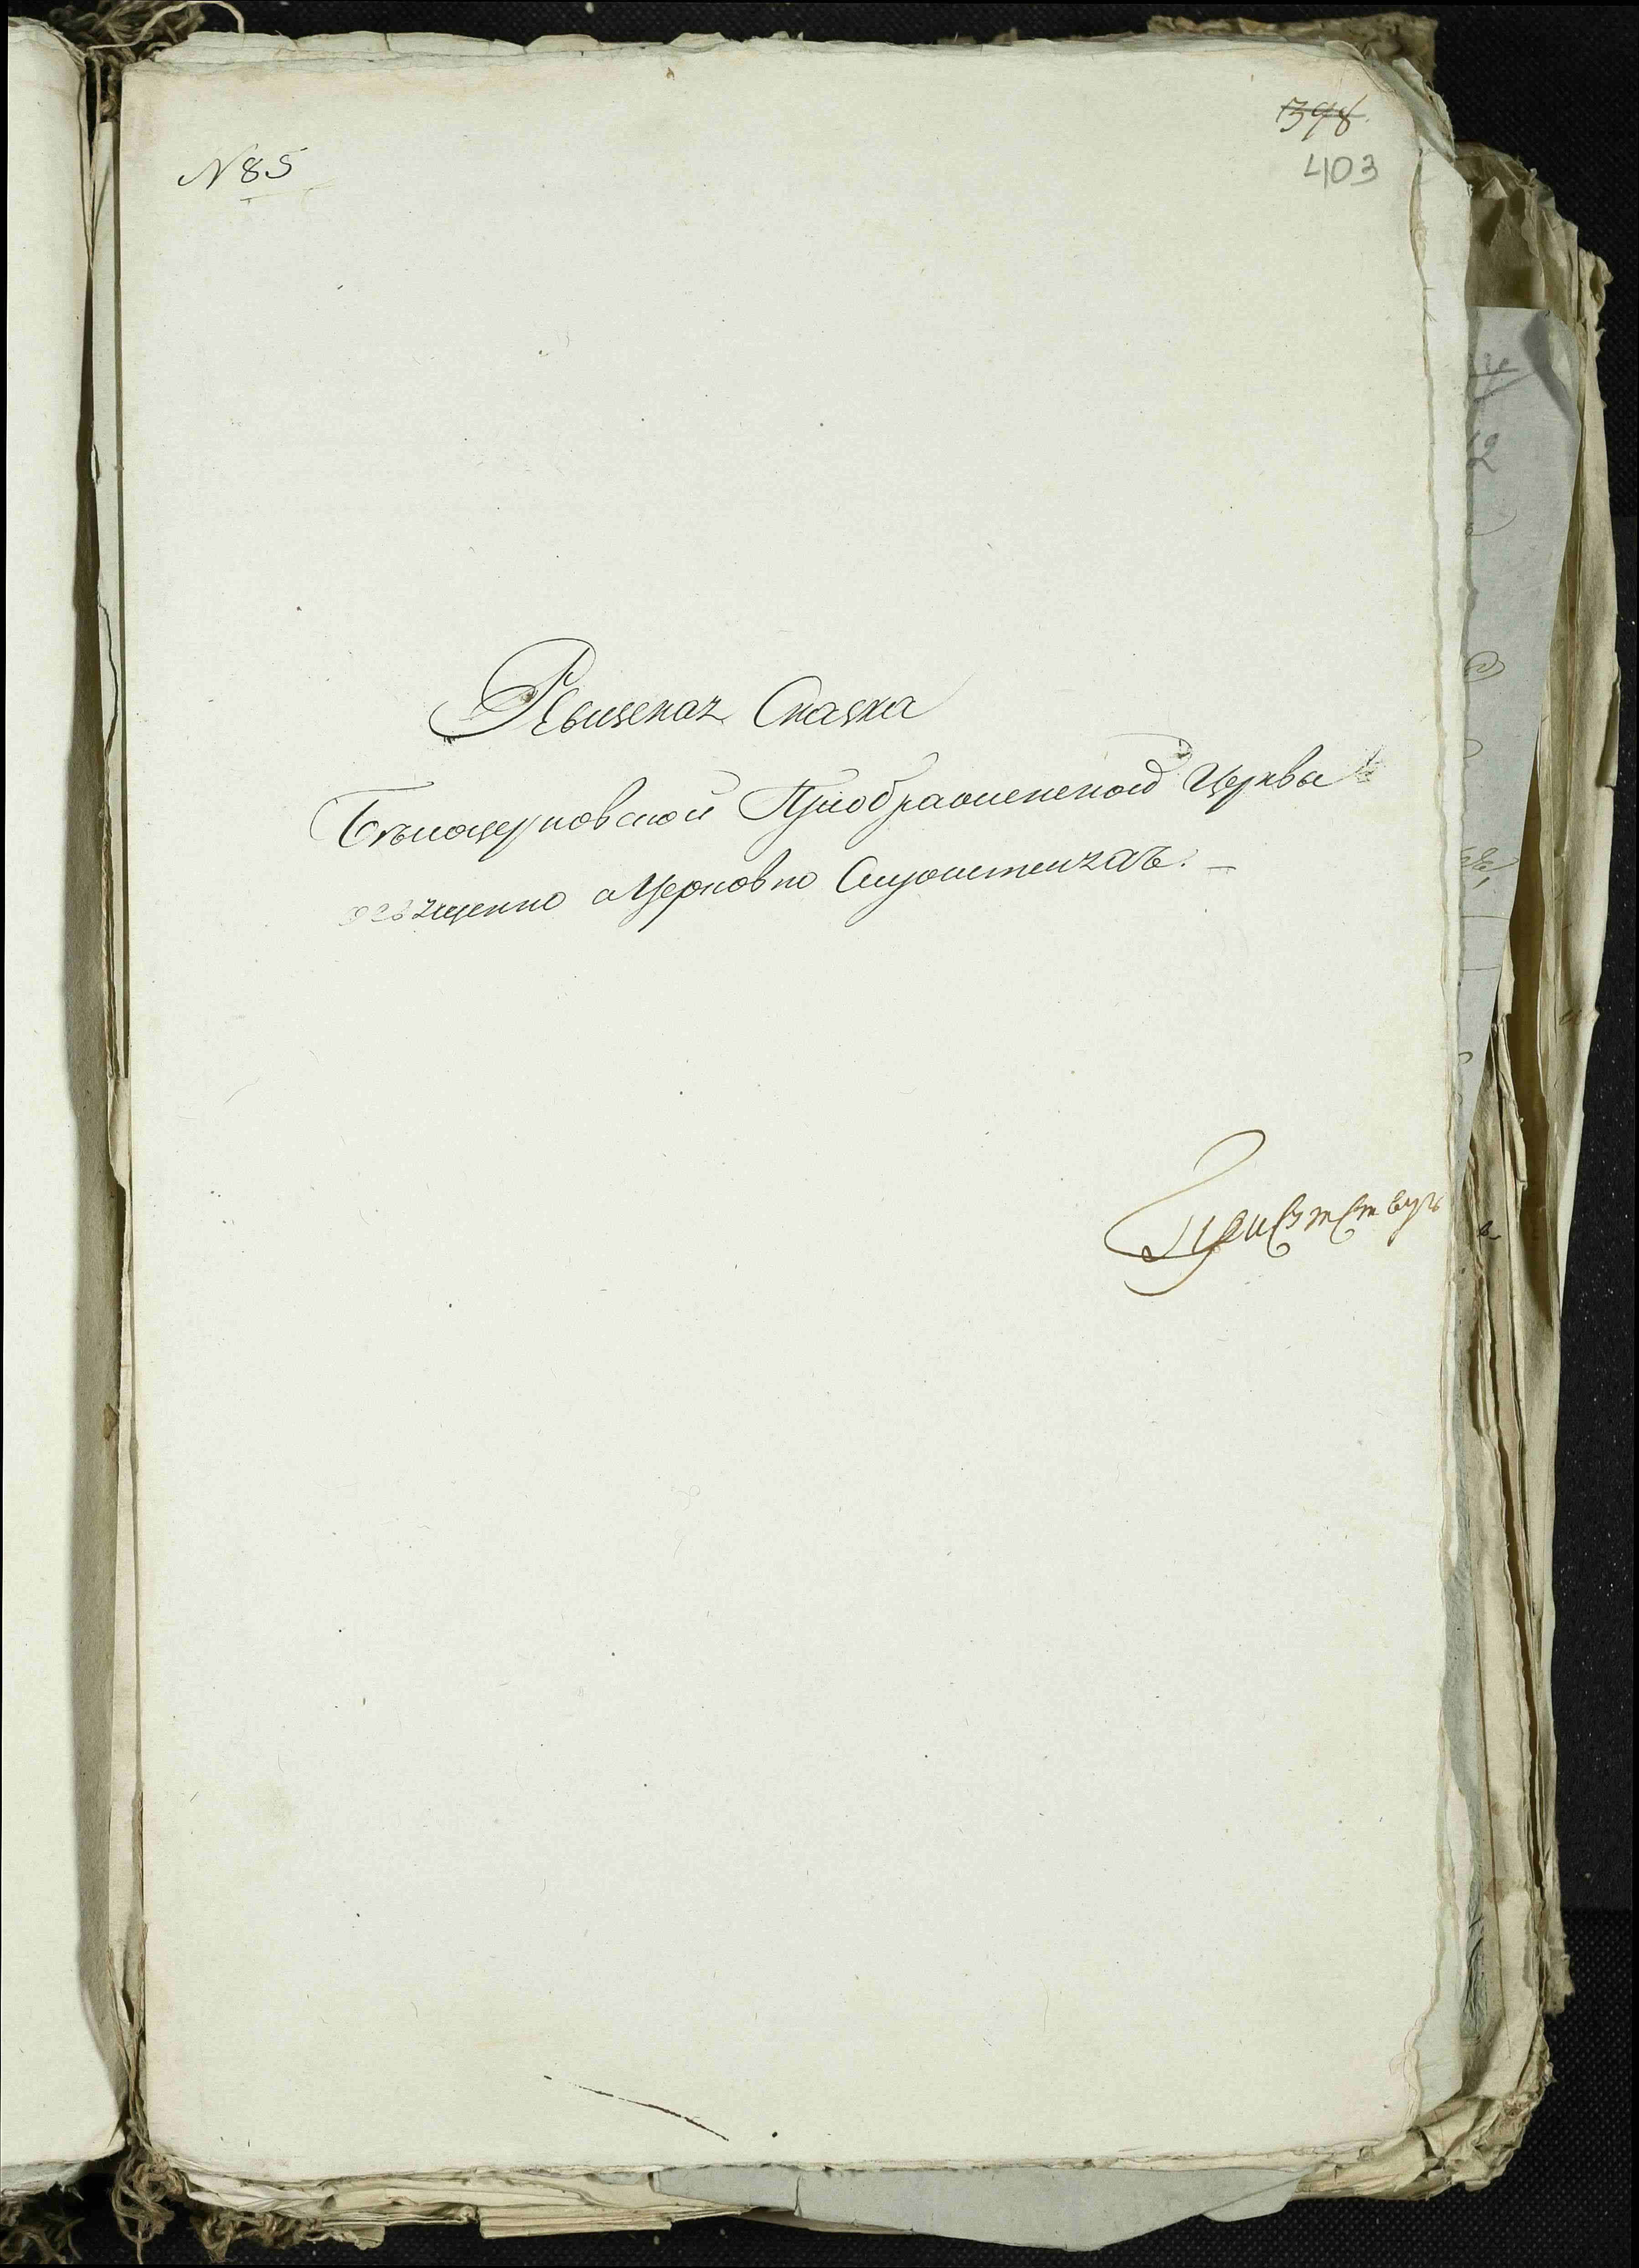 N 85
398.
403
Ревизская Сказка
Белоцерковской Приображенской Церквы
освященно ицерковно Служителяхъ. –
Присутству